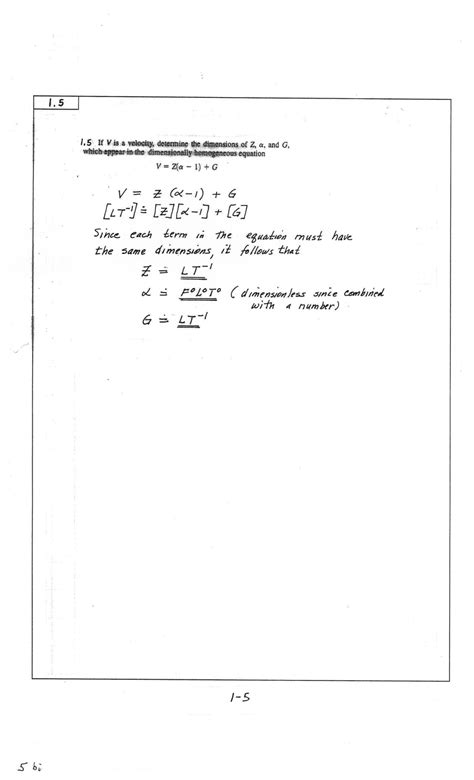 1.5
1.5 If V is a velocity, determine the dimensions of Z, α, and G,
which appear in the dimensionally homogeneous equation
V = Z(α − 1) + G
V = Z (α-1) + G
[LT⁻¹] ≐ [Z][α-1] + [G]
Since each term in the equation must have
the same dimensions, it follows that
Z ≐ LT⁻¹
α ≐ F⁰L⁰T⁰ (dimensionless since combined
with a number)
G ≐ LT⁻¹
1-5
5 bi